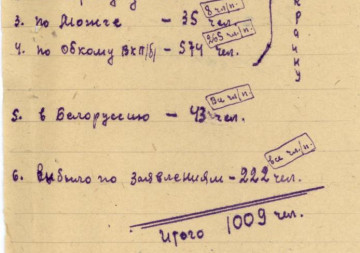 3. по Можге – 35 чел.
8 чл/п.
4. по Обкому ВКП/б/ – 574 чел.
265 чл/п.
краину
5. в Белоруссию – 43 чел.
чл/п.
6. Выбыло по заявлениям – 222 чел.
чл/п.
Итого 1009 чел.